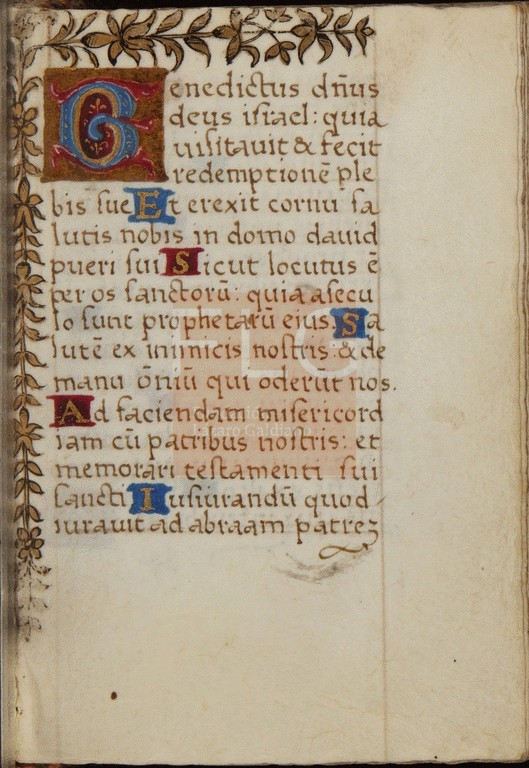 Genedictus dn̄us
deus iſrael: quia
uiſitauit & fecit
redemptionē ple
bis ſue Et erexit cornu ſa
lutis nobis in domo dauid
pueri ſui Sicut locutus ē
per os ſanctorū: quia aſecu
lo ſunt prophetarū eius. Sa
lutē ex inimicis noſtris: & de
manu ōniū qui oderūt nos.
Ad faciendam miſericord
iam cū patribus noſtris: et
memorari teſtamenti ſui
ſancti Iuſiurandū quod
iurauit ad abraam patrez
FLG
Lázaro Galdiano